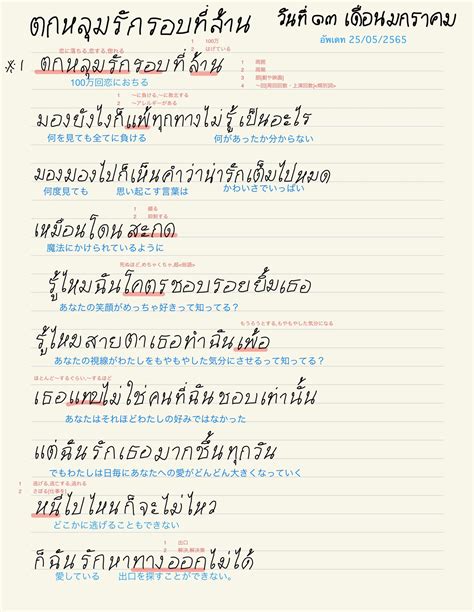 ตกหลุมรักรอบที่ล้าน วันที่ ๑๓ เดือนมกราคม
อัพเดท 25/05/2565
恋に落ちる,恋する,惚れる
1 100万
2 はげている
※1 ตกหลุมรักรอบที่ล้าน
1 周囲
2 周期
3 回(劇や映画)
4 〜回[周回回数・上演回数]«類別詞»
100万回恋におちる
1 〜に負ける,〜に敗北する
2 〜アレルギーがある
มองยังไงก็แพ้ทุกทางไม่รู้เป็นอะไร
何を見ても全てに負ける 何があったか分からない
มองมองไปก็เห็นคำว่าน่ารักเต็มไปหมด
何度見ても 思い起こす言葉は かわいさでいっぱい
1 綴る
2 抑制する
เหมือนโดนสะกด
魔法にかけられているように
死ぬほど,めちゃくちゃ,超«俗語»
รู้ไหมฉันโคตรชอบรอยยิ้มเธอ
あなたの笑顔がめっちゃ好きって知ってる？
もうろうとする,もやもやした気分になる
รู้ไหมสายตาเธอทำฉันเพ้อ
あなたの視線がわたしをもやもやした気分にさせるって知ってる？
ほとんど〜するぐらい,〜するほど
เธอแทบไม่ใช่คนที่ฉันชอบเท่านั้น
あなたはそれほどわたしの好みではなかった
แต่ฉันรักเธอมากขึ้นทุกวัน
でもわたしは日毎にあなたへの愛がどんどん大きくなっていく
1 逃げる,逃亡する,逃れる
2 さぼる(仕事を)
หนีไปไหนก็จะไม่ไหว
どこかに逃げることもできない
1 出口
2 解決,解決策
ก็ฉันรักหาทางออกไม่ได้
愛している 出口を探すことができない。